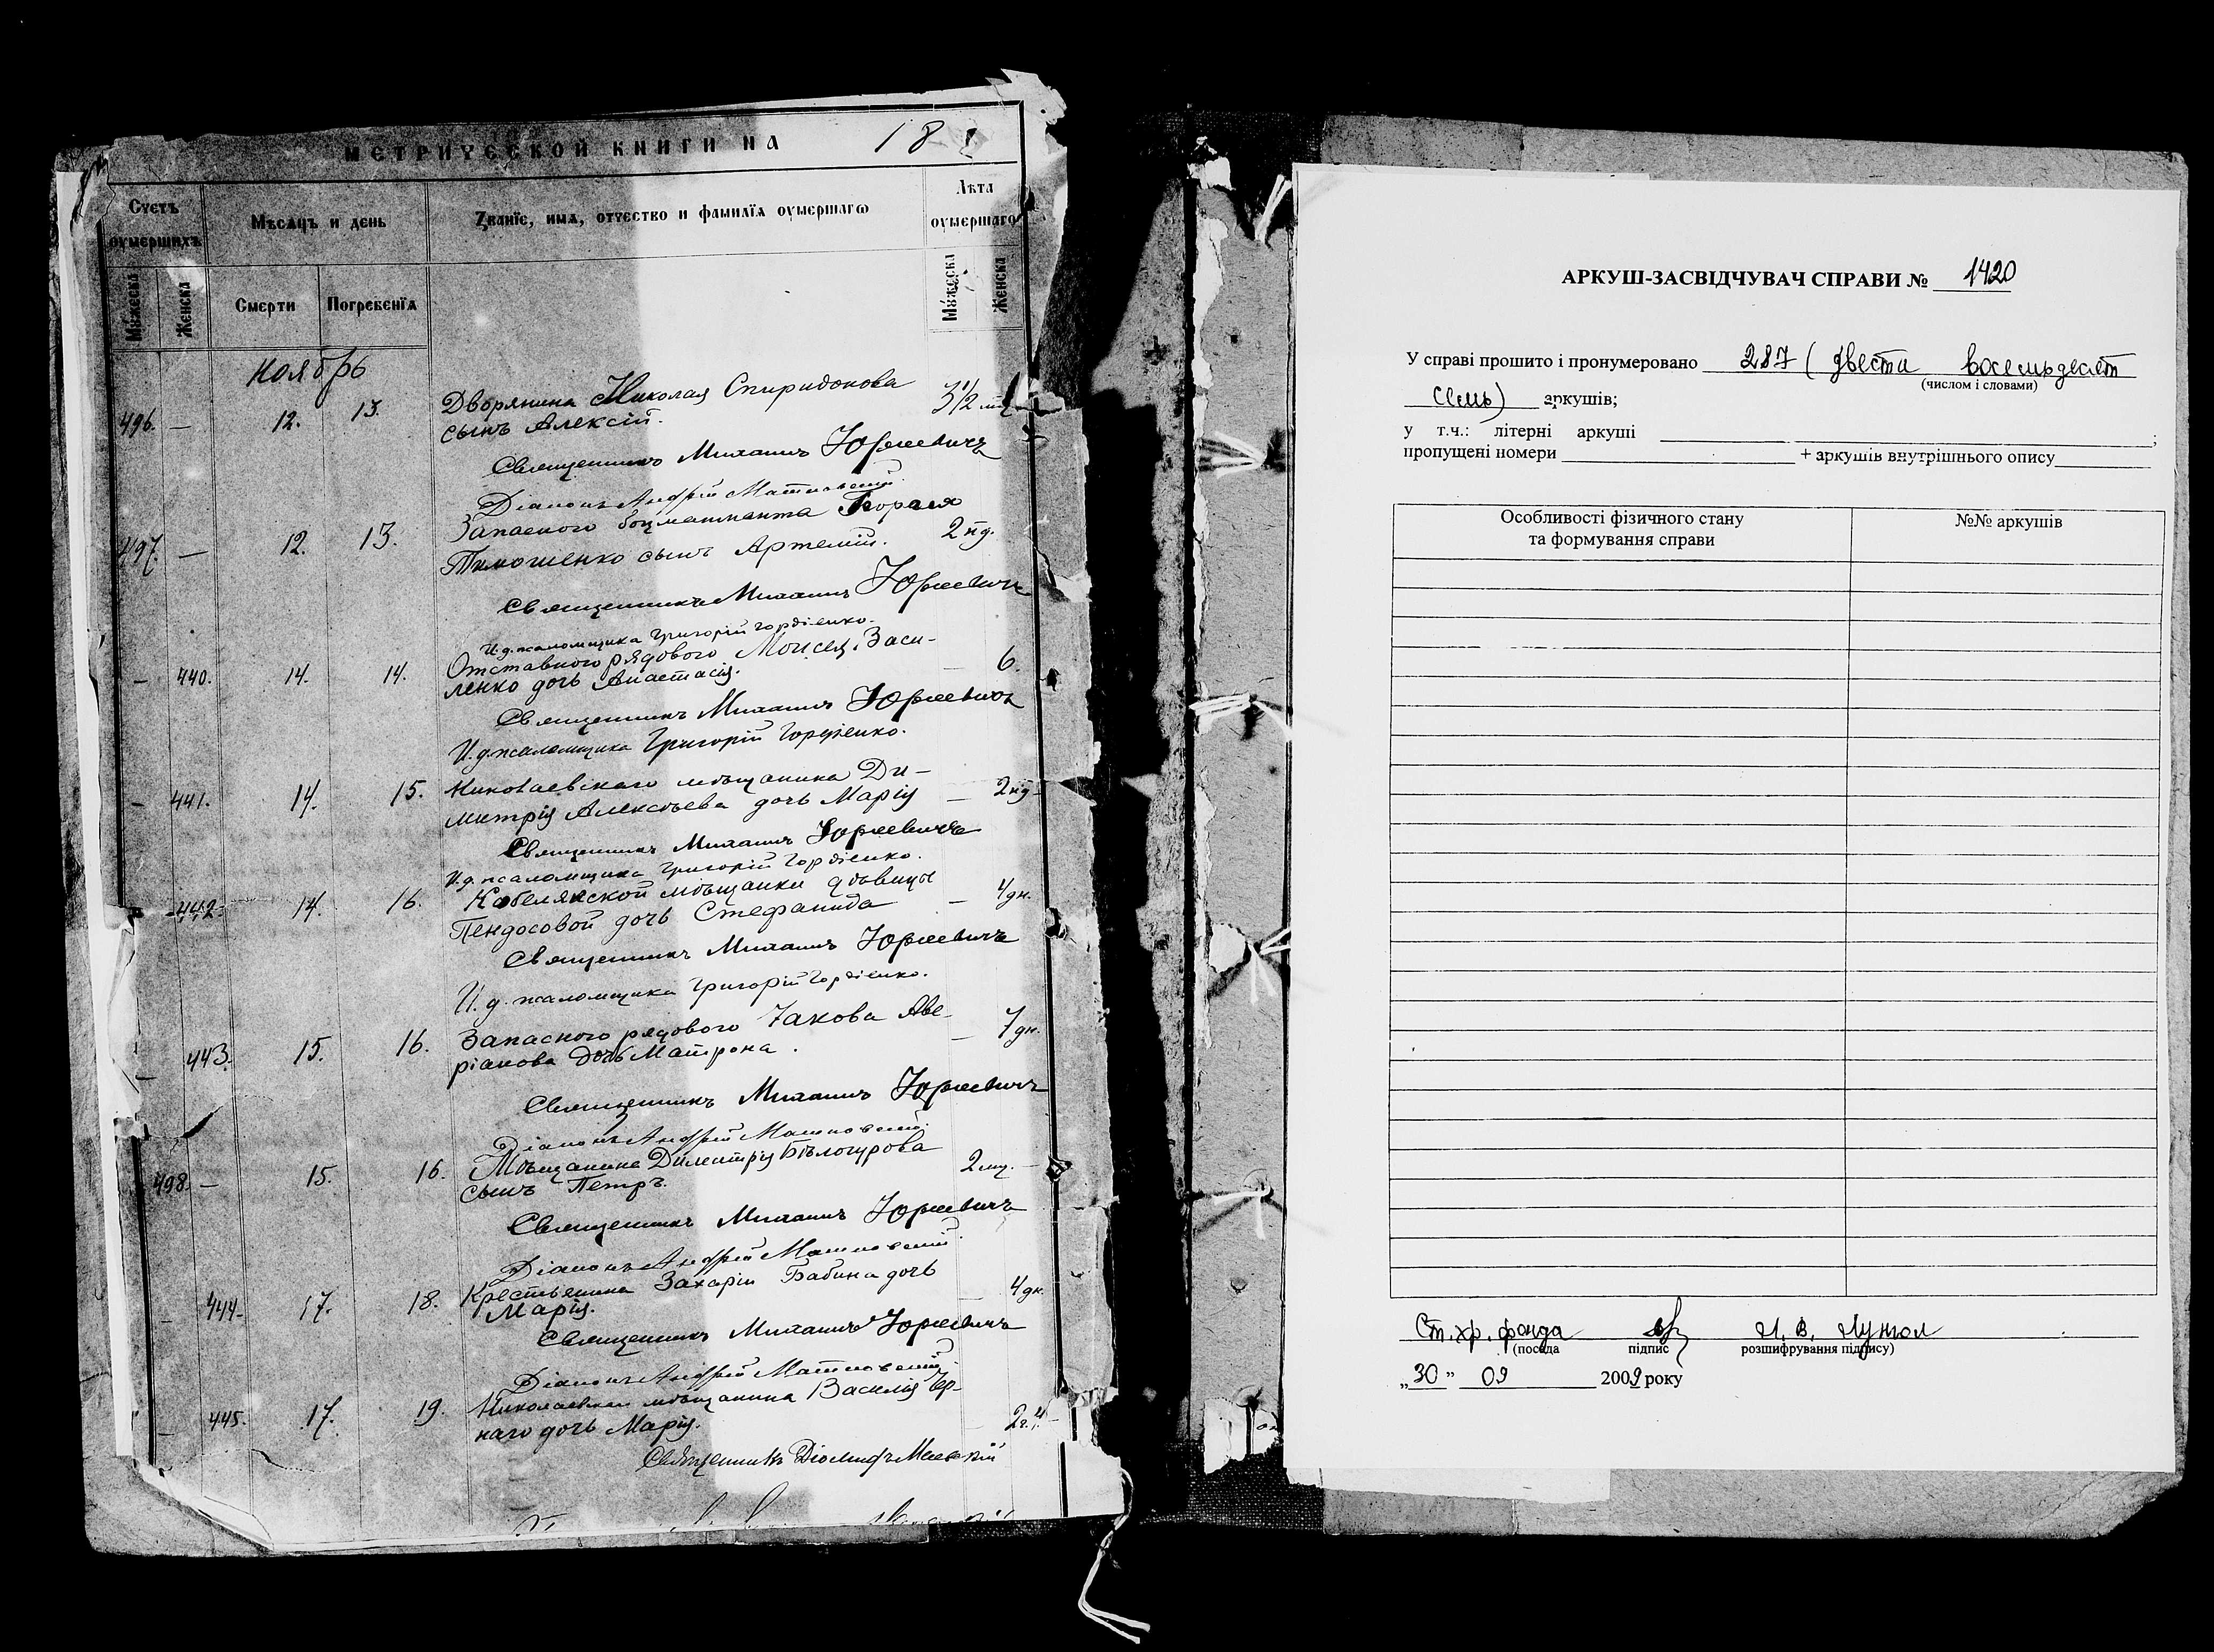 МЕТРИЧЕСКОЙ КНИГИ НА 18
Счетъ оумершихъ
Мѣсяцъ и день
Званїе, имѧ, отчество и фамилїѧ оумершагѡ
Лѣта оумершаго
Мужеска
Женска
Смерти
Погребенїѧ
Мужеска
Женска
Ноябрь
496. — 12. 13. Дворянина Николая Спиридонова 3 1/2
сынъ Алексій.
Священникъ Михаилъ Юркевичъ
Діаконъ Андрій
497. — 12. 13. Запасного
Тимошенко сынъ Артемій. 2 нд.
Священникъ Михаилъ Юркевичъ
И.д. псаломщика Григорій Гордіенко.
— 440. 14. 14. Отставного рядового Моисея Васи- — 6.
ленко дочь Анастасія.
Священникъ Михаилъ Юркевичъ
И.д. псаломщика Григорій Гордіенко.
— 441. 14. 15. Николаевскаго мѣщанина Ди-
митрія Алексѣева дочь Марія — 2 нд.
Священникъ Михаилъ Юркевичъ
И.д. псаломщика Григорій Гордіенко.
— 442. 14. 16. Кобелякской мѣщанки дѣвицы — 4 дн.
Пендосовой дочь Стефанида
Священникъ Михаилъ Юркевичъ
И.д. псаломщика Григорій Гордіенко.
— 443. 15. 16. Запасного рядового Іакова Аве- — 7 дн.
ріанова дочь Матрона.
Священникъ Михаилъ Юркевичъ
Діаконъ Андрій
498. — 15. 16. Мѣщанина Димитрія Бѣлогурова 2 мц. —
сынъ Петръ.
Священникъ Михаилъ Юркевичъ
Діаконъ Андрій
— 444. 17. 18. Крестьянина Захарія Бабина дочь — 4 дн.
Марія.
Священникъ Михаилъ Юркевичъ
Діаконъ Андрій
— 445. 17. 19. Николаевскаго мѣщанина Василія Чер-
наго дочь Марія.
Священникъ
АРКУШ-ЗАСВІДЧУВАЧ СПРАВИ № 1420
У справі прошито і пронумеровано 287 (двести восемьдесят
(числом і словами)
семь) аркушів;
у т.ч.: літерні аркуші ;
пропущені номери + аркушів внутрішнього опису
Особливості фізичного стану
та формування справи
№№ аркушів
Ст. хр. фонда
(посада підпис розшифрування підпису)
„30” 09 2009 року